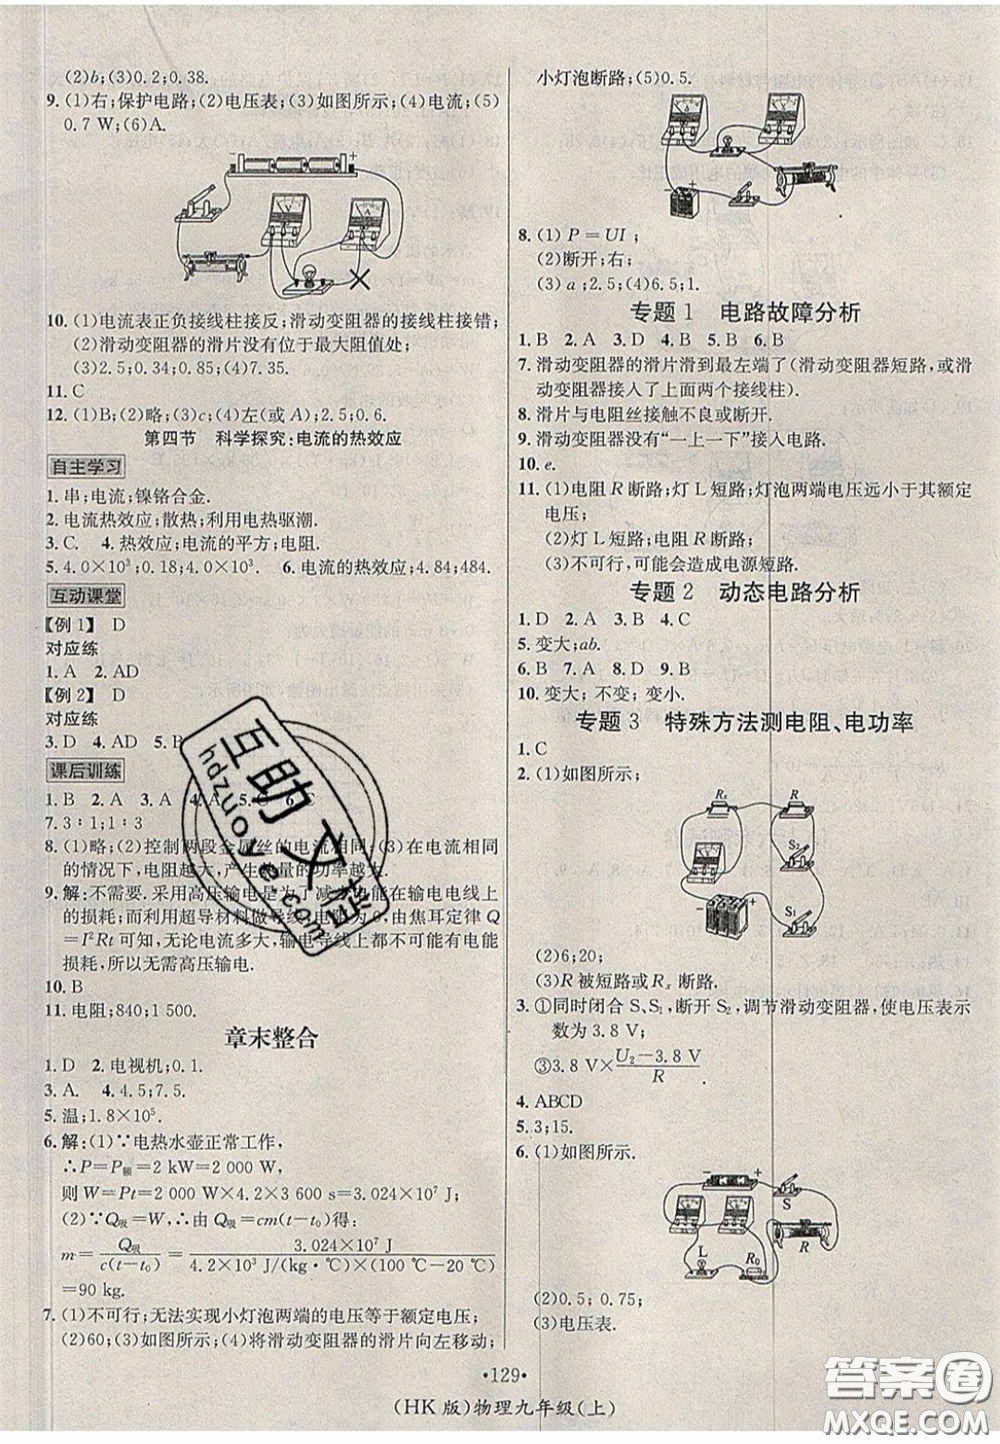 (2)b;(3)0.2;0.38.
9. (1)右;保护电路;(2)电压表;(3)如图所示;(4)电流;(5)
0.7 W;(6)A.
10. (1)电流表正负接线柱接反;滑动变阻器的接线柱接错;
(2)滑动变阻器的滑片没有位于最大阻值处;
(3)2.5;0.34;0.85;(4)7.35.
11. C
12. (1)B;(2)略;(3)c;(4)左(或 A);2.5;0.6.
第四节 科学探究:电流的热效应
自主学习
1. 串;电流;镍铬合金.
2. 电流热效应;散热;利用电热驱潮.
3. C. 4. 热效应;电流的平方;电阻.
5. 4.0×10³;0.18;4.0×10³. 6. 电流的热效应;4.84;484.
互动课堂
【例 1】 D
对应练
1. A 2. AD
【例 2】 D
对应练
3. D 4. AD 5. B
课后训练
1. B 2. A 3. A 4. A 5. C 6. C
7. 3∶1;1∶3
8. (1)略;(2)控制两段金属丝的电流相同;(3)在电流相同
的情况下,电阻越大,产生热量的功率越大.
9. 解:不需要.采用高压输电是为了减小电能在输电电线上
的损耗;而利用超导材料做导线,电阻为 0,由焦耳定律 Q
=I²Rt 可知,无论电流多大,输电导线上都不可能有电能
损耗,所以无需高压输电.
10. B
11. 电阻;840;1 500.
章末整合
1. D 2. 电视机;0.1.
3. A. 4. 4.5;7.5.
5. 温;1.8×10⁵.
6. 解:(1)∵电热水壶正常工作,
∴P=P额=2 kW=2 000 W,
则 W=Pt=2 000 W×4.2×3 600s=3.024×10⁷ J;
(2)∵Q吸=W,∴由 Q吸=cm(t-t₀)得:
m=Q吸/c(t-t₀)=3.024×10⁷ J/4.2×10³ J/(kg·℃)×(100℃-20℃)=
90 kg.
7. (1)不可行;无法实现小灯泡两端的电压等于额定电压;
(2)60;(3)如图所示;(4)将滑动变阻器的滑片向左移动;
小灯泡断路;(5)0.5.
8. (1) P=UI ;
(2)断开;右;
(3) a ;2.5;(4)6.5;1.
专题 1 电路故障分析
1. B 2. A 3. D 4. B 5. B 6. B
7. 滑动变阻器的滑片滑到最左端了(滑动变阻器短路,或滑
动变阻器接入了上面两个接线柱).
8. 滑片与电阻丝接触不良或断开.
9. 滑动变阻器没有“一上一下”接入电路.
10. e.
11. (1)电阻 R 断路;灯 L 短路;灯泡两端电压远小于其额定
电压;
(2)灯 L 短路;电阻 R 断路;
(3)不可行,可能会造成电源短路.
专题 2 动态电路分析
1. D 2. A 3. B 4. C
5. 变大;ab.
6. B 7. A 8. D 9. B
10. 变大; 不变; 变小.
专题 3 特殊方法测电阻、电功率
1. C
2. (1)如图所示;
Rₓ R
S₂
S₁
(2)6;20;
(3)R 被短路或 Rₓ 断路.
3. ①同时闭合 S、S₁,断开 S₂,调节滑动变阻器,使电压表示
数为 3.8 V;
③3.8 V×U₂-3.8 V/R
4. ABCD
5. 3;15.
6. (1)如图所示.
S
L R₀ R
(2)0.5; 0.75;
(3)电压表.
·129·
(HK 版)物理九年级(上)
互助文档
hdzuoye.com
答案圈
MXQE.COM